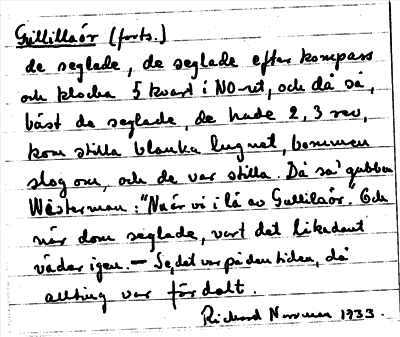 Gullillaór (forts.)
de seglade, de seglade efter kompass
och klocka 5 kvart i NO-vit, och då så,
bäst de seglade, de hade 2, 3 rev,
kom stilla blanka lugnet, bommen
slog om, och de var stilla. Då sa' gubben
Wästerman: "Nu är vi i lä av Gullilaór." Och
när dom seglade, vart det likadant
väder igen. — Se, det var på den tiden, då
allting var fördolt.
Richard 1933.